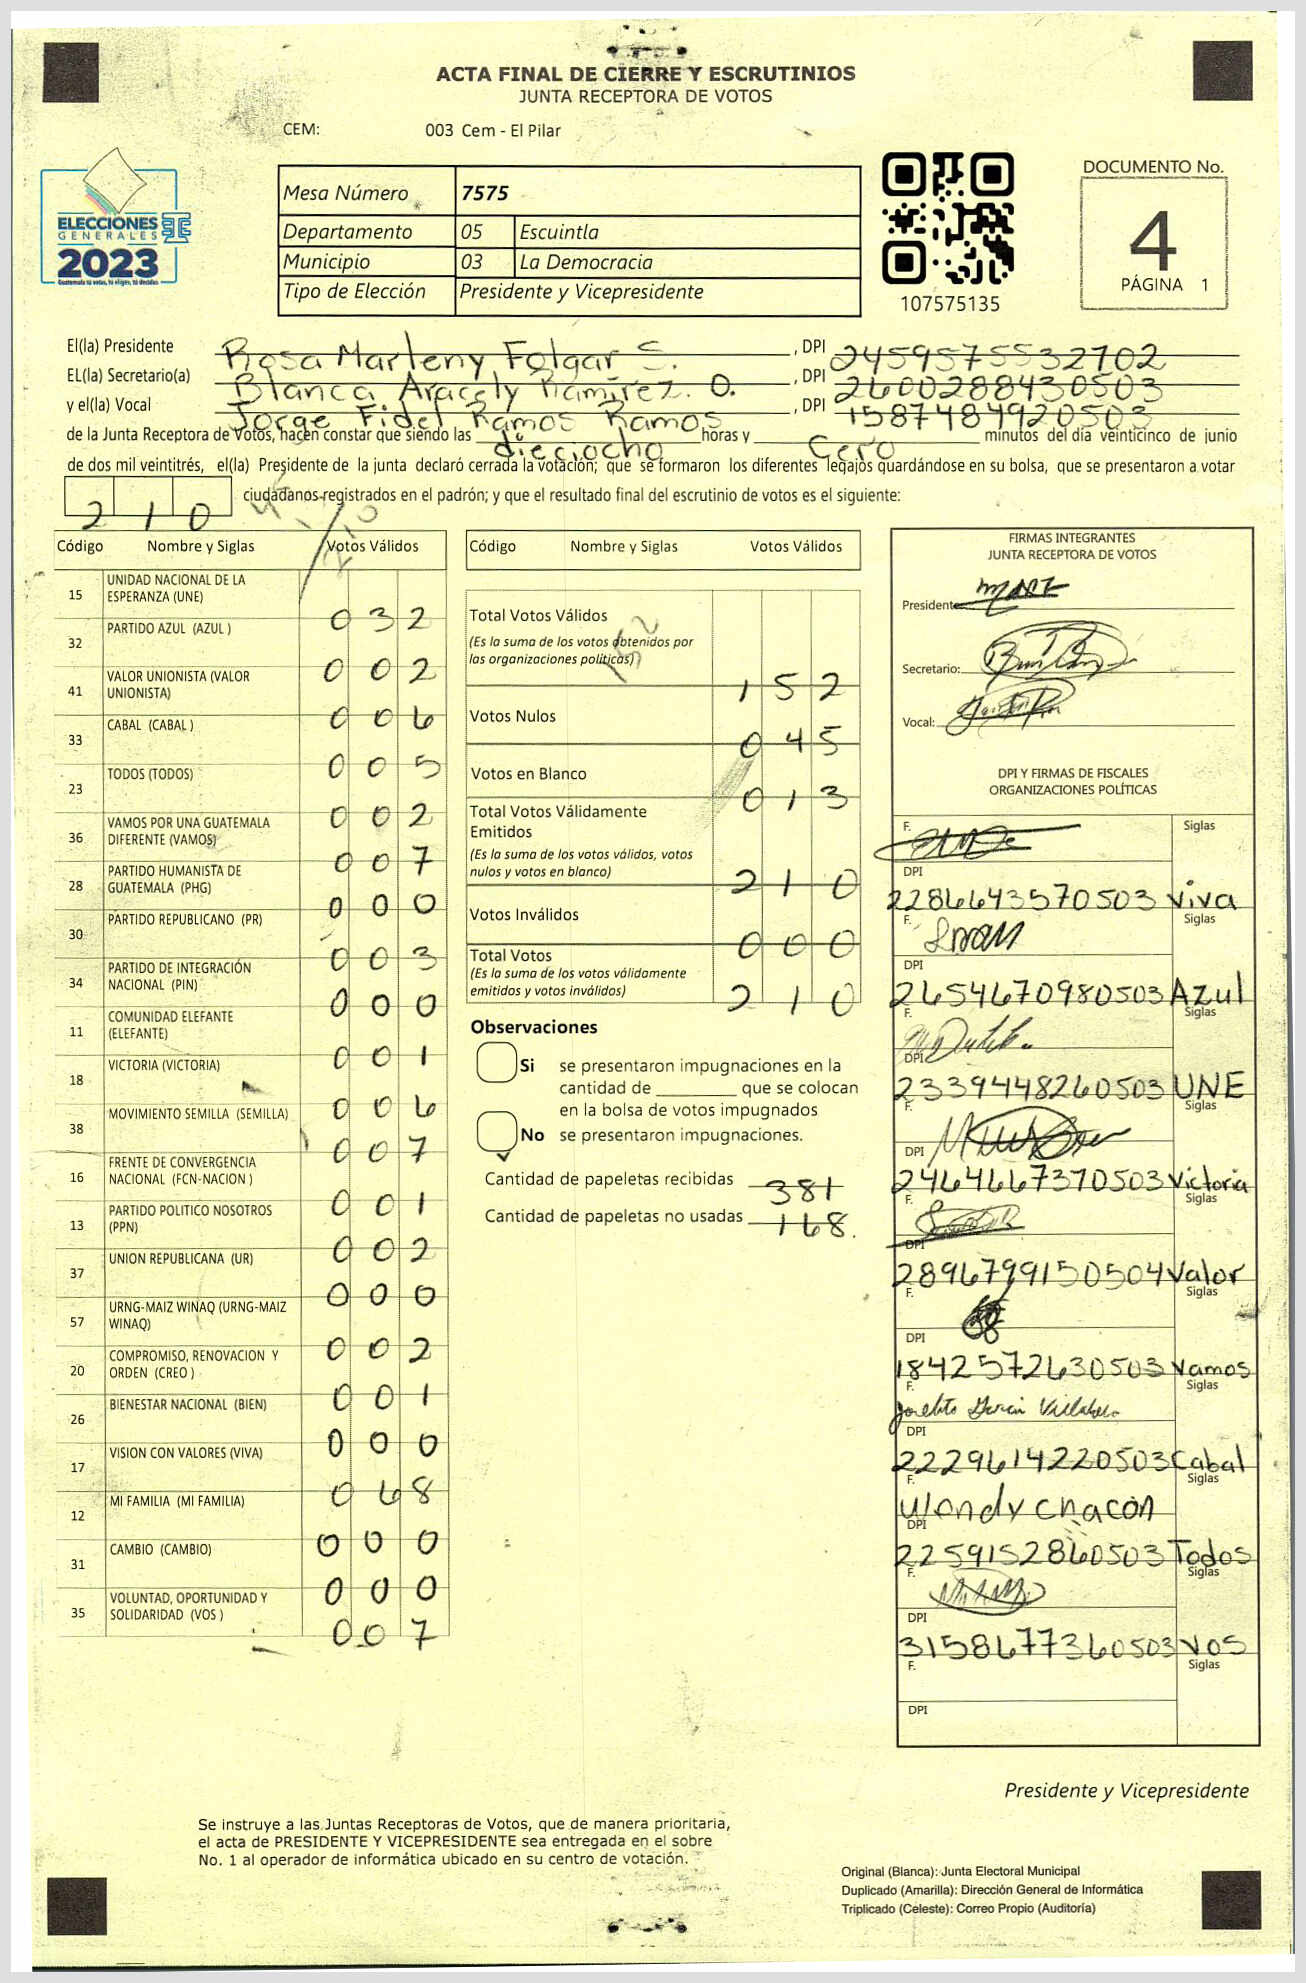 ACTA FINAL DE CIERRE Y ESCRUTINIOS
JUNTA RECEPTORA DE VOTOS
CEM: 003 Cem - El Pilar
ELECCIONES
GENERALES
2023
Guatemala tú votas, tú eliges, tú decides
Mesa Número 7575
Departamento 05 Escuintla
Municipio 03 La Democracia
Tipo de Elección Presidente y Vicepresidente
107575135
DOCUMENTO No.
4
PÁGINA 1
El(la) Presidente Rosa Marleny Folgar S. , DPI 2459575532702
EL(la) Secretario(a) Blanca Aracely Ramírez. O. , DPI 2600288430503
y el(la) Vocal Jorge Fidel Ramos Ramos , DPI 1587484920503
de la Junta Receptora de Votos, hacen constar que siendo las dieciocho horas y Cero minutos del día veinticinco de junio
de dos mil veintitrés, el(la) Presidente de la junta declaró cerrada la votación; que se formaron los diferentes legajos guardándose en su bolsa, que se presentaron a votar
210 ciudadanos registrados en el padrón; y que el resultado final del escrutinio de votos es el siguiente:
Código Nombre y Siglas Votos Válidos
15 UNIDAD NACIONAL DE LA ESPERANZA (UNE) 032
32 PARTIDO AZUL (AZUL ) 002
41 VALOR UNIONISTA (VALOR UNIONISTA) 006
33 CABAL (CABAL ) 005
23 TODOS (TODOS) 002
36 VAMOS POR UNA GUATEMALA DIFERENTE (VAMOS) 007
28 PARTIDO HUMANISTA DE GUATEMALA (PHG) 000
30 PARTIDO REPUBLICANO (PR) 003
34 PARTIDO DE INTEGRACIÓN NACIONAL (PIN) 000
11 COMUNIDAD ELEFANTE (ELEFANTE) 001
18 VICTORIA (VICTORIA) 006
38 MOVIMIENTO SEMILLA (SEMILLA) 007
16 FRENTE DE CONVERGENCIA NACIONAL (FCN-NACION ) 001
13 PARTIDO POLITICO NOSOTROS (PPN) 002
37 UNION REPUBLICANA (UR) 000
57 URNG-MAIZ WINAQ (URNG-MAIZ WINAQ) 002
20 COMPROMISO, RENOVACION Y ORDEN (CREO ) 001
26 BIENESTAR NACIONAL (BIEN) 000
17 VISION CON VALORES (VIVA) 068
12 MI FAMILIA (MI FAMILIA) 000
31 CAMBIO (CAMBIO) 000
35 VOLUNTAD, OPORTUNIDAD Y SOLIDARIDAD (VOS ) 007
Código Nombre y Siglas Votos Válidos
Total Votos Válidos 152
(Es la suma de los votos obtenidos por
las organizaciones políticas)
152
Votos Nulos 045
Votos en Blanco 013
Total Votos Válidamente
Emitidos 210
(Es la suma de los votos válidos, votos
nulos y votos en blanco)
Votos Inválidos 000
Total Votos 210
(Es la suma de los votos válidamente
emitidos y votos inválidos)
Observaciones
Si se presentaron impugnaciones en la
cantidad de ________ que se colocan
en la bolsa de votos impugnados
No se presentaron impugnaciones.
Cantidad de papeletas recibidas 381
Cantidad de papeletas no usadas 168.
FIRMAS INTEGRANTES
JUNTA RECEPTORA DE VOTOS
Presidente:
Secretario:
Vocal:
DPI Y FIRMAS DE FISCALES
ORGANIZACIONES POLÍTICAS
F. Siglas
DPI
2286643570503 Viva
F. Siglas
DPI
2654670980503 Azul
F. Siglas
DPI
2339448260503 UNE
F. Siglas
DPI
2464667370503 Victoria
F. Siglas
DPI
2896799150504 Valor
F. Siglas
DPI
1842572630503 Vamos
F. Siglas
DPI
2229614220503 Cabal
F. Siglas
Wendy Chacón
DPI
2259152860503 Todos
F. Siglas
DPI
3158677360503 VOS
F. Siglas
DPI
Presidente y Vicepresidente
Se instruye a las Juntas Receptoras de Votos, que de manera prioritaria,
el acta de PRESIDENTE Y VICEPRESIDENTE sea entregada en el sobre
No. 1 al operador de informática ubicado en su centro de votación.
Original (Blanca): Junta Electoral Municipal
Duplicado (Amarilla): Dirección General de Informática
Triplicado (Celeste): Correo Propio (Auditoría)